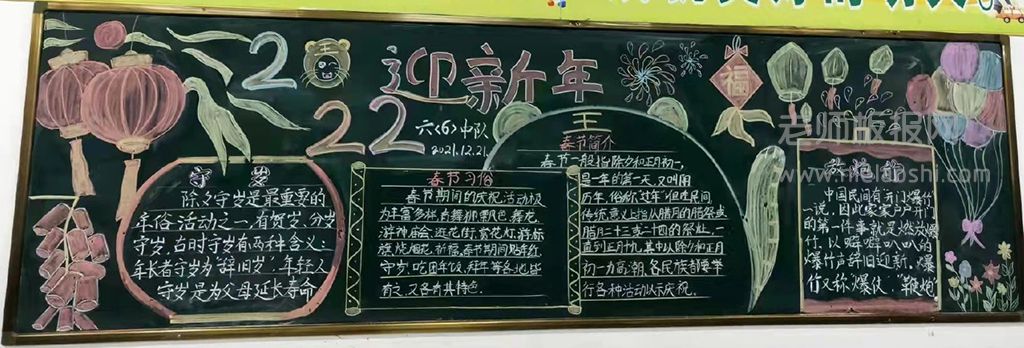 2022
迎新年
六〈6〉中队
2021.12.21.
福
王
守岁
除夕守岁是最重要的
年俗活动之一,有贺岁、分岁
守岁,古时守岁有两种含义:
年长者守岁为"辞旧岁",年轻人
守岁是为父母延长寿命
春节习俗
春节期间的庆祝活动极
为丰富多样,有舞狮
游神庙会、逛花街、赏花灯
旗、烧烟花、祈福、春节期间贴年红
守岁、吃团年饭、拜年等各地皆
有之,又各有其特色.
春节简介
春节一般指除夕和正月初一,
是一年的第一天,又叫阴
历年,俗称"过年".但在民间
传统意义上指从腊月的腊祭或
腊月二十三或二十四的祭灶,一
直到正月十九,其中以除夕和正月
初一为高潮.各民族都要举
行各种活动以示庆祝.
中国民间有"开门爆竹"
一说.因此家家户户开门
的第一件事就是燃放爆
竹,以噼噼叭叭的
爆竹声辞旧迎新.爆
竹又称"爆仗","鞭炮"
老师板报网
www.riclaoshi.com